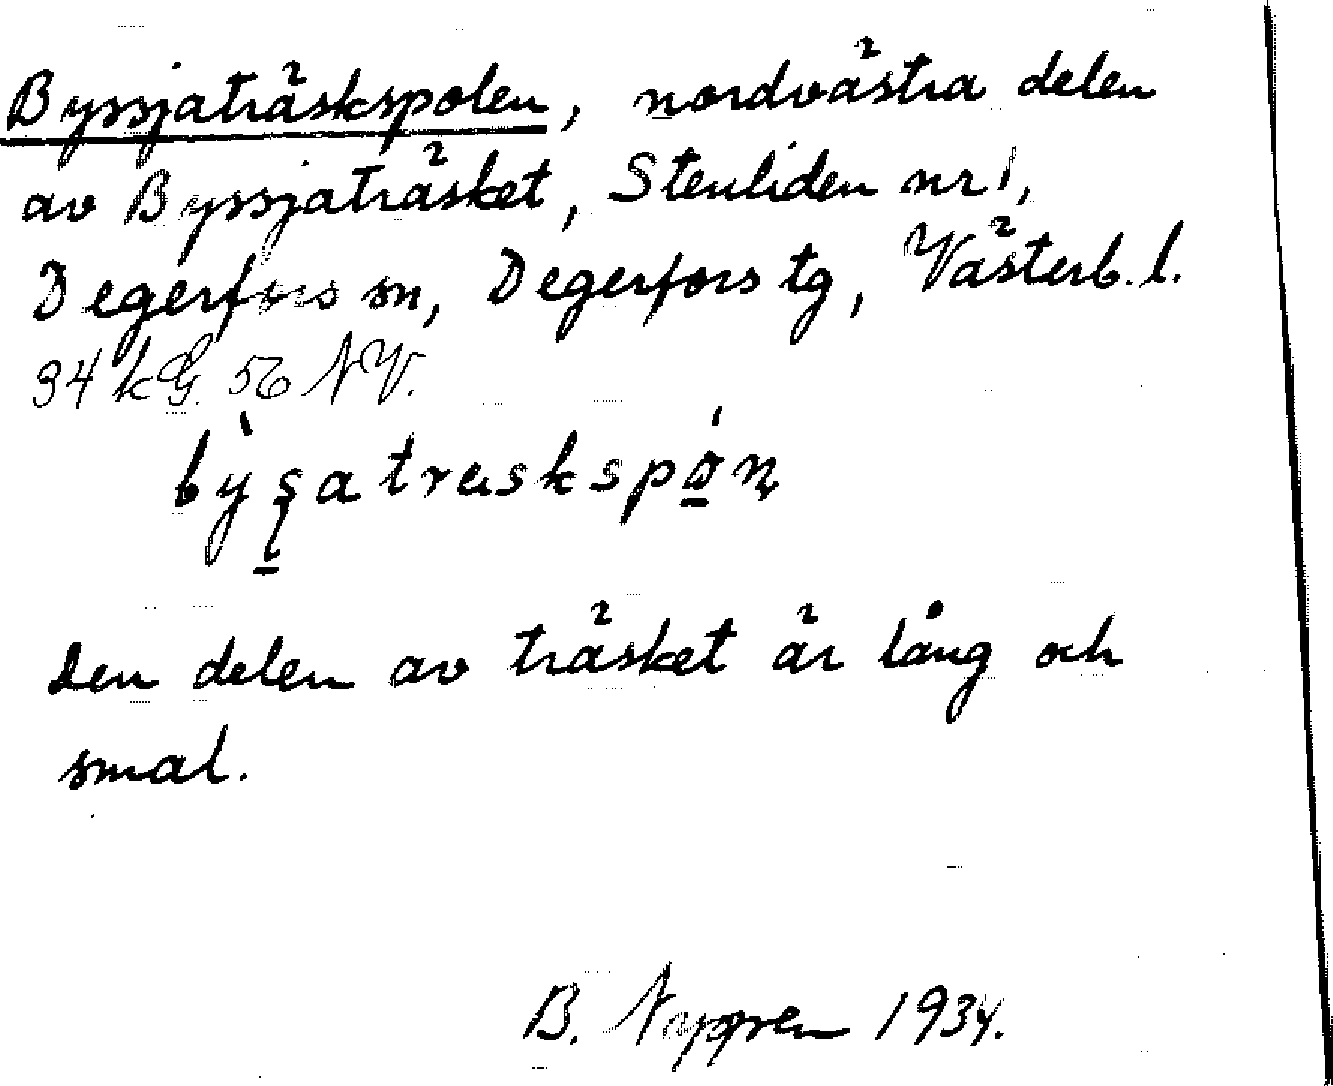 Byssjaträskspolen, nordvästra delen
av Byssjaträsket, Stenliden nr 1,
Degerfors sn, Degerfors tg, Västerb. l.
34 kG. 56 NV.
Den delen av träsket är lång och
smal.
B. Nygren 1934.